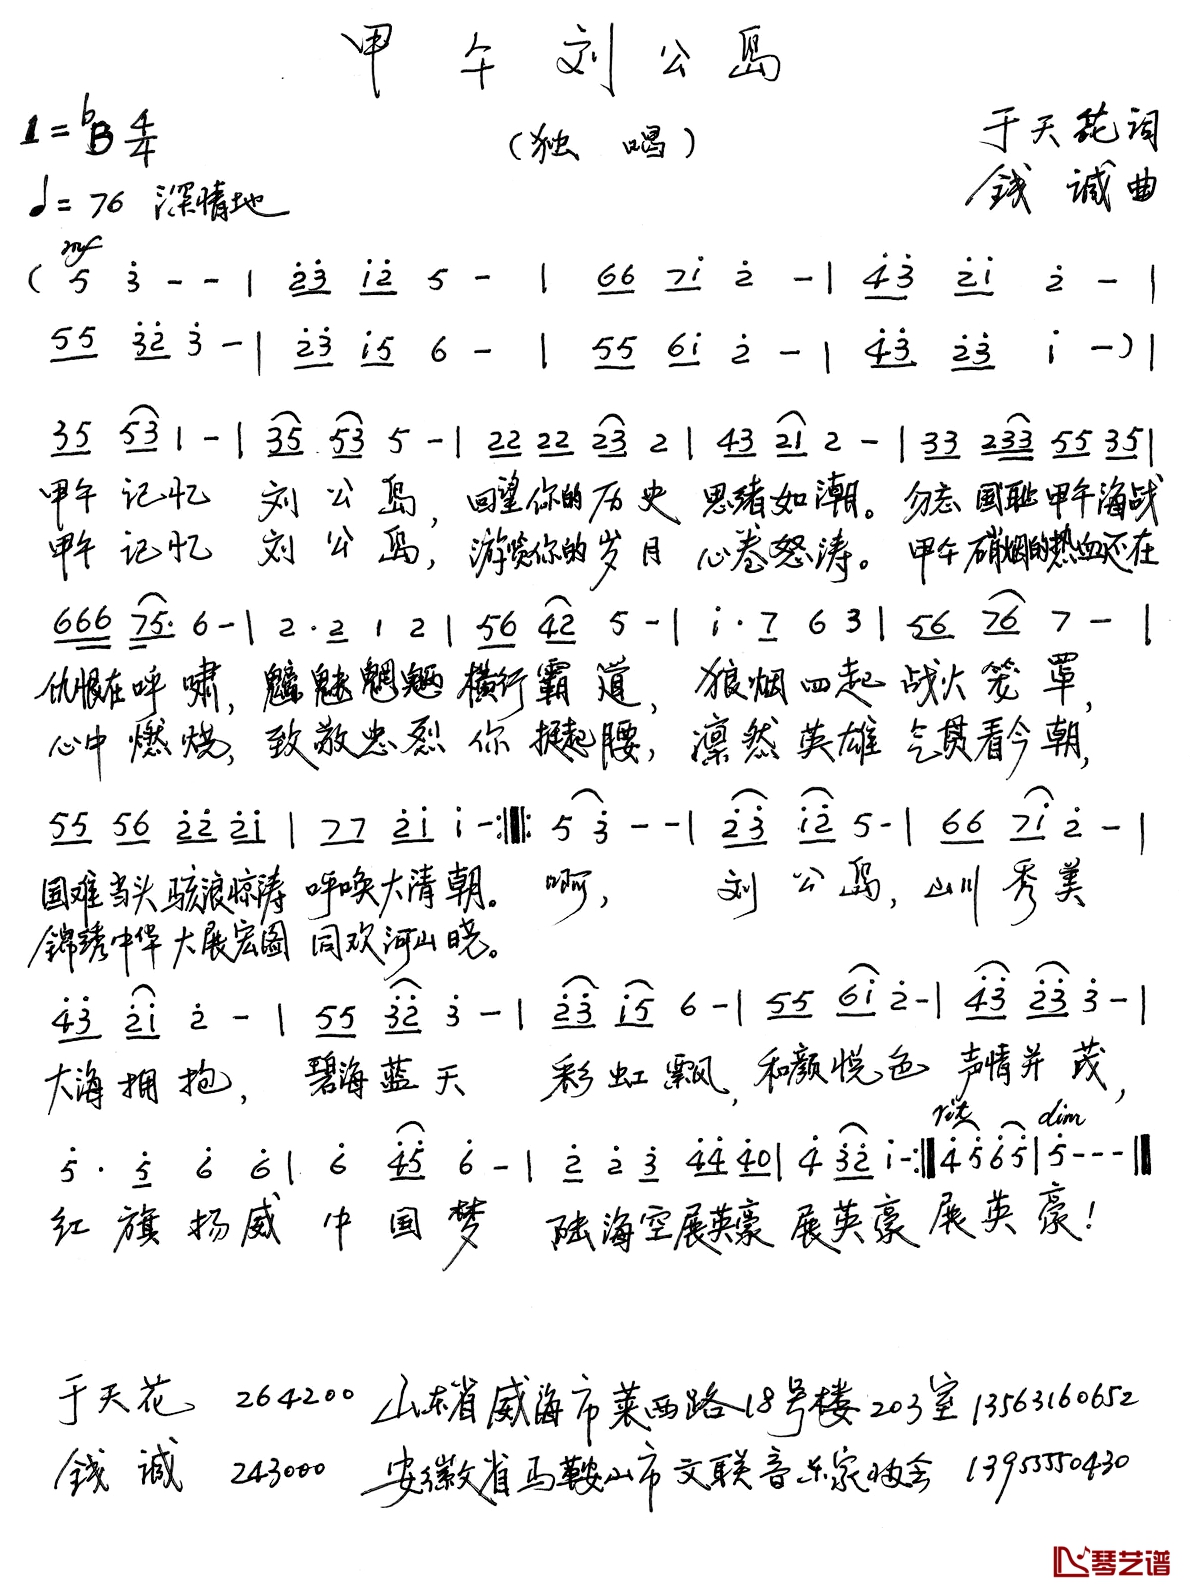 甲午刘公岛
1=♭B 4/4
(独 唱)
于天花词
♩=76 深情地
钱 诚曲
mf
( 5 3̇ - - | 2̇3̇ 1̇2̇ 5 - | 66 71̇ 2̇ - | 4̇3̇ 2̇1̇ 2̇ - |
55 3̇2̇ 3̇ - | 2̇3̇ 1̇5 6 - | 55 61̇ 2̇ - | 4̇3̇ 2̇3̇ 1̇ - ) |
35 53 1 - | 35 53 5 - | 22 22 23 2 | 43 21 2 - | 33 233 55 35 |
甲午 记忆 刘 公 岛, 回望你的 历 史 思绪如潮。 勿忘 国耻 甲午海战
甲午 记忆 刘 公 岛, 游览你的 岁 月 心卷怒涛。 甲午 硝烟的热血还在
666 75· 6 - | 2·2 1 2 | 56 42 5 - | 1̇·7 6 3 | 56 76 7 - |
仇恨在呼 啸, 魑魅魍魉 横行霸 道, 狼烟四起 战火笼 罩,
心中 燃 烧, 致敬忠烈 你 挺起腰, 凛然英雄 气贯看今朝,
55 56 2̇2̇ 2̇1̇ | 77 2̇1̇ 1̇ - :‖: 5 3̇ - - | 2̇3̇ 1̇2̇ 5 - | 66 71̇ 2̇ - |
国难当头 骇浪惊涛 呼唤大清朝。 啊, 刘 公 岛, 山川 秀 美
锦绣中华 大展宏图 同欢河山晓。
4̇3̇ 2̇1̇ 2̇ - | 55 3̇2̇ 3̇ - | 2̇3̇ 1̇5 6 - | 55 61̇ 2̇ - | 4̇3̇ 2̇3̇ 3̇ - |
大海 拥 抱, 碧海 蓝 天 彩 虹 飘, 和颜悦色 声情并 茂,
rit dim
5̇ · 5̇ 6̇ 6̇ | 6̇ 4̇5̇ 6̇ - | 2̇ 2̇ 3̇ 4̇4̇ 4̇0 | 4̇ 3̇2̇ 1̇ - :‖ 4̇ 5̇ 6̇ 5̇ | 5̇ - - - ‖
红 旗 扬 威 中 国 梦 陆海空展英豪 展英豪 展英豪!
于天花 264200 山东省威海市莱西路18号楼203室 13563160652
钱 诚 243000 安徽省马鞍山市文联音乐家协会 13955550430
琴艺谱